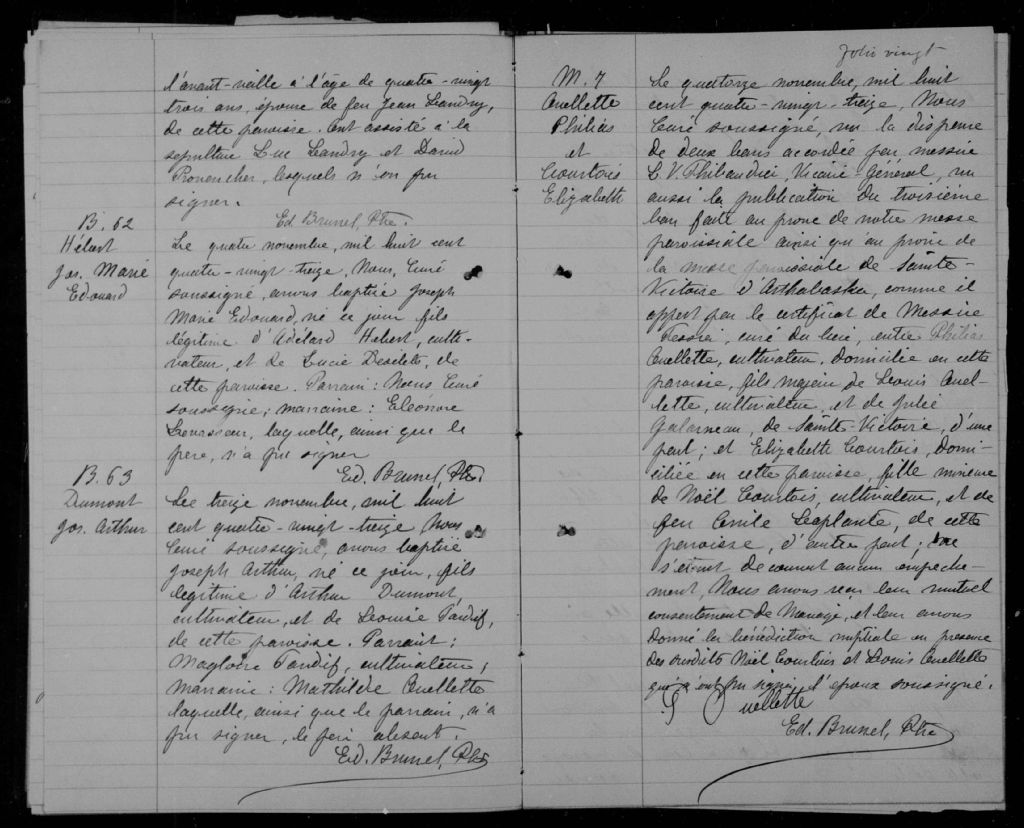 l'avant-veille à l'âge de quatre-vingt
trois ans, épouse de feu Jean Leandry,
de cette paroisse. Ont assisté à la
sepulture Luc Leandry et David
Provencher, lesquels n'on pu
signer.
Ed. Brunel, Ptre.
B. 62
Hébert
Jos. Marie
Edouard
Le quatre novembre, mil huit cent
quatre-vingt-treize, Nous, Curé
soussigné, avons baptisé Joseph
Marie Edouard, né ce jour fils
légitime d'Adélard Hebert, culti-
vateur, et de Lucie Desclets, de
cette paroisse. Parrain: Nous Curé
soussigné; marraine: Eléonore
Levasseur, laquelle, ainsi que le
père, n'a pu signer
Ed. Brunel, Ptre
B. 63
Dumont
Jos. Arthur
Le treize novembre, mil huit
cent quatre-vingt-treize Nous
Curé soussigné, avons baptisé
Joseph Arthur, né ce jour, fils
légitime d'Arthur Dumont,
cultivateur, et de Leonise Tardif,
de cette paroisse. Parrain:
Magloire Tardif, cultivateur;
marraine: Mathilde Ouellette
laquelle, ainsi que le parrain, n'a
pu signer, le père absent.
Ed. Brunel, Ptre
folio vingt
M. 7
Ouellette
Philias
et
Courtois
Elizabeth
Le quatorze novembre, mil huit
cent quatre-vingt-treize, Nous
Curé soussigné, vu la dispense
de deux bans accordée par messire
L. V. Thibaudier, Vicaire-Général, vu
aussi la publication du troisième
ban faite au prone de notre messe
paroissiale ainsi qu'au prone de
la messe paroissiale de Sainte-
Victoire d'Arthabaska, comme il
appert par le certificat de Messire
Tessier, curé du lieu, entre Philias
Ouellette, cultivateur, domicilié en cette
paroisse, fils majeur de Louis Ouel-
lette, cultivateur, et de Julie
Galarneau, de Sainte-Victoire, d'une
part; et Elizabette Courtois, Domi-
ciliée en cette paroisse, fille mineure
de Noël Courtois, cultivateur, et de
feu Emile Laplante, de cette
paroisse, d'autre part; ne
s'étant decouvert aucun empeche-
ment, Nous avons reçu leur mutuel
consentement de Mariage, et leur avons
donné la bénédiction nuptiale en presence
des susdits Noël Courtois et Louis Ouellette
qui n'ont pu signer, l'époux soussigné.
P Ouellette
Ed. Brunel, Ptre